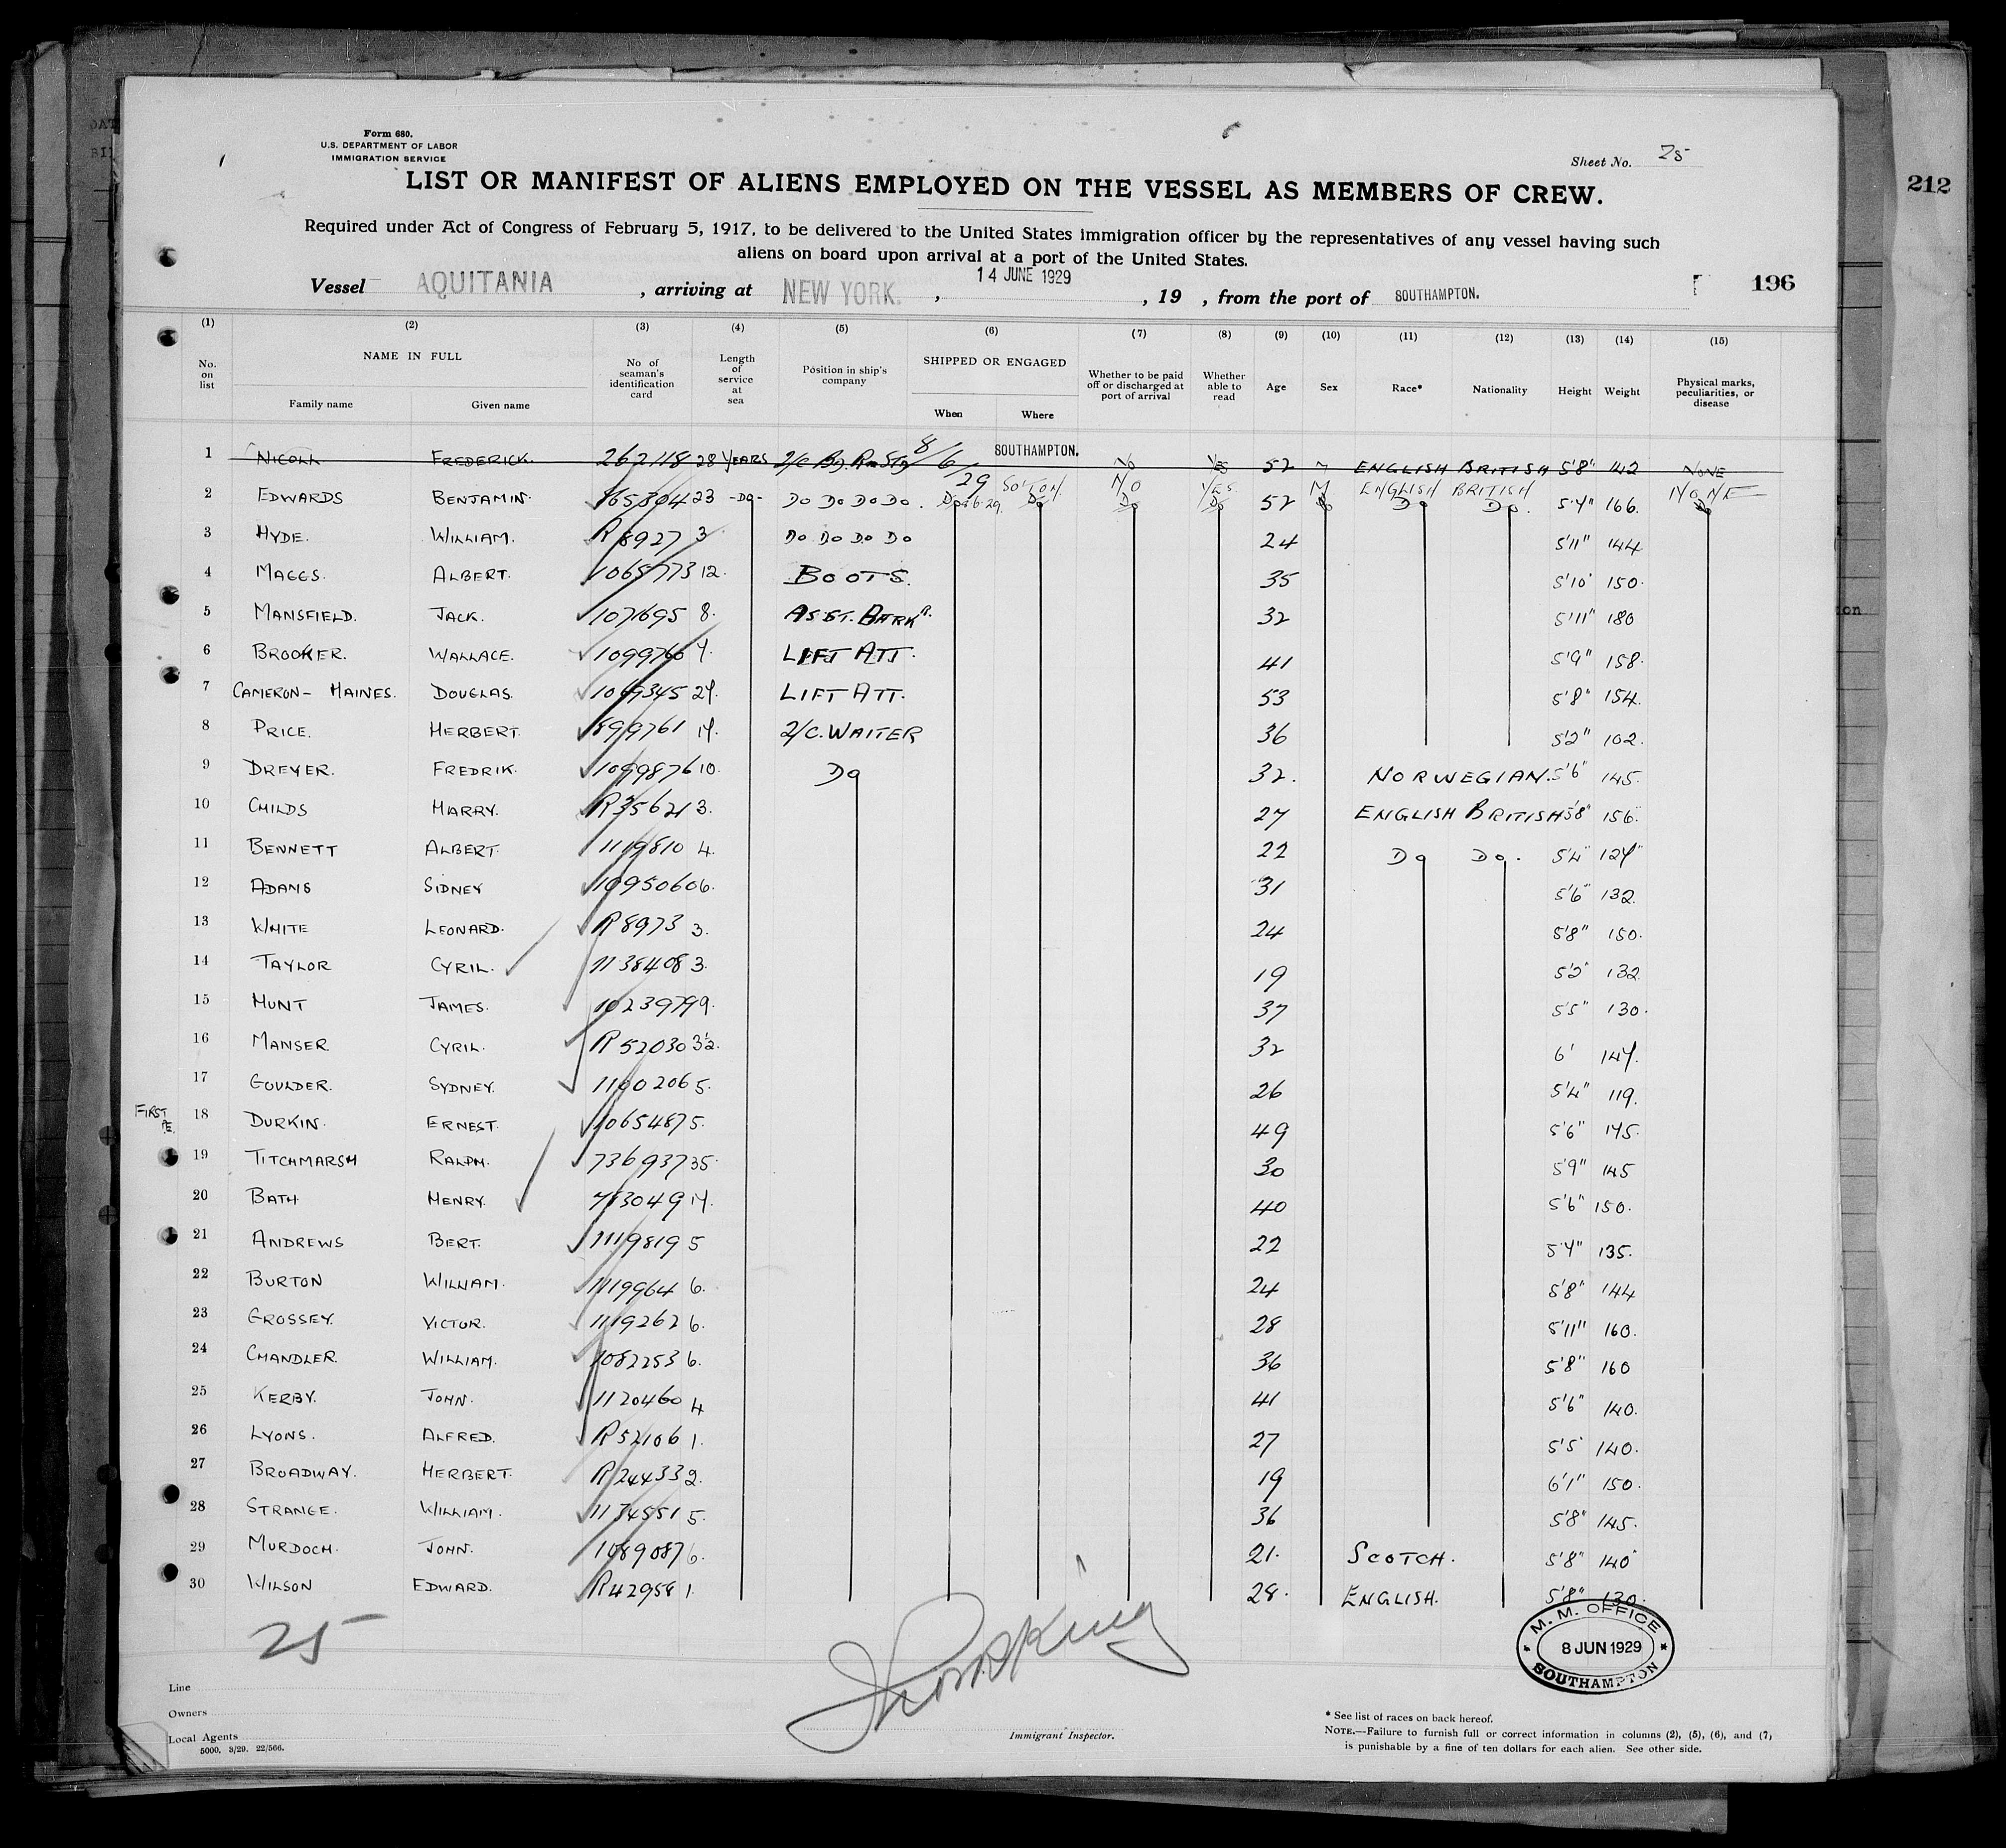 Form 680.
U.S. DEPARTMENT OF LABOR
IMMIGRATION SERVICE
Sheet No. 25
LIST OR MANIFEST OF ALIENS EMPLOYED ON THE VESSEL AS MEMBERS OF CREW.
212
Required under Act of Congress of February 5, 1917, to be delivered to the United States immigration officer by the representatives of any vessel having such
aliens on board upon arrival at a port of the United States.
Vessel AQUITANIA, arriving at NEW YORK., 14 JUNE 1929, 19 , from the port of SOUTHAMPTON. 196
(1) (2) (3) (4) (5) (6) (7) (8) (9) (10) (11) (12) (13) (14) (15)
No. on list NAME IN FULL Family name Given name No of seaman's identification card Length of service at sea Position in ship's company SHIPPED OR ENGAGED When Where Whether to be paid off or discharged at port of arrival Whether able to read Age Sex Race* Nationality Height Weight Physical marks, peculiarities, or disease
1 NICOLL FREDERICK. 262118 28 YEARS 8/6/29 SOUTHAMPTON. NO YES 52 M ENGLISH BRITISH 5'8" 142 NONE
SO'TON NO YES. M ENGLISH BRITISH NONE
2 EDWARDS BENJAMIN. 865304 23 -DO- DO DO DO DO. DO Do Do 52 Do Do. 5'4" 166. Do
3 HYDE. WILLIAM. R 8927 3 DO DO DO DO 24 5'11" 144
4 MAGGS. ALBERT. 1065773 12. BOOTS. 35 5'10" 150.
5 MANSFIELD. JACK. 1071695 8. ASST. BARKR. 32 5'11" 180
6 BROOKER. WALLACE. 1099760 7. LIFT ATT. 41 5'9" 158.
7 CAMERON- HAINES. DOUGLAS. 1069345 27. LIFT ATT. 53 5'8" 154.
8 PRICE. HERBERT. 899761 17. 2/C. WAITER 36 5'2" 102.
9 DREYER. FREDRIK. 1099876 10. Do 32. NORWEGIAN. 5'6" 145.
10 CHILDS HARRY. R35621 3. 27 ENGLISH BRITISH 5'8" 156.
11 BENNETT ALBERT. 1119810 4. 22 Do Do. 5'4" 127
12 ADAMS SIDNEY 1095060 6. 31 5'6" 132.
13 WHITE LEONARD. R 8973 3. 24 5'8" 150.
14 TAYLOR CYRIL. 1138408 3. 19 5'2" 132.
15 HUNT JAMES. 1023979 9. 37 5'5" 130.
16 MANSER. CYRIL. R 52030 3½. 32 6' 147.
17 GOULDER. SYDNEY. 1100206 5. 26 5'4" 119.
FIRST
18 DURKIN. ERNEST. 1065487 5. 49 5'6" 175.
19 TITCHMARSH RALPH. 736937 35. 30 5'9" 145
20 BATH HENRY. 783049 17. 40 5'6" 150.
21 ANDREWS BERT. 1119819 5 22 5'7" 135.
22 BURTON WILLIAM. 1119964 6. 24 5'8" 144
23 GROSSEY. VICTOR. 1119262 6. 28 5'11" 160.
24 CHANDLER. WILLIAM. 1082253 6. 36 5'8" 160
25 KERBY. JOHN. 1120460 4 41 5'6" 140.
26 LYONS. ALFRED. R52106 1. 27 5'5" 140.
27 BROADWAY. HERBERT. R24433 2. 19 6'1" 150.
28 STRANGE. WILLIAM. 1134551 5. 36 5'8" 145.
29 MURDOCH. JOHN. 1089087 6. 21. SCOTCH. 5'8" 140
30 WILSON EDWARD. R42958 1. 28. ENGLISH. 5'8" 130.
25
M. M. OFFICE
8 JUN 1929
SOUTHAMPTON
Line
Owners
Local Agents
5000. 3/29. 22/566.
Immigrant Inspector.
* See list of races on back hereof.
NOTE.—Failure to furnish full or correct information in columns (2), (5), (6), and (7)
is punishable by a fine of ten dollars for each alien. See other side.